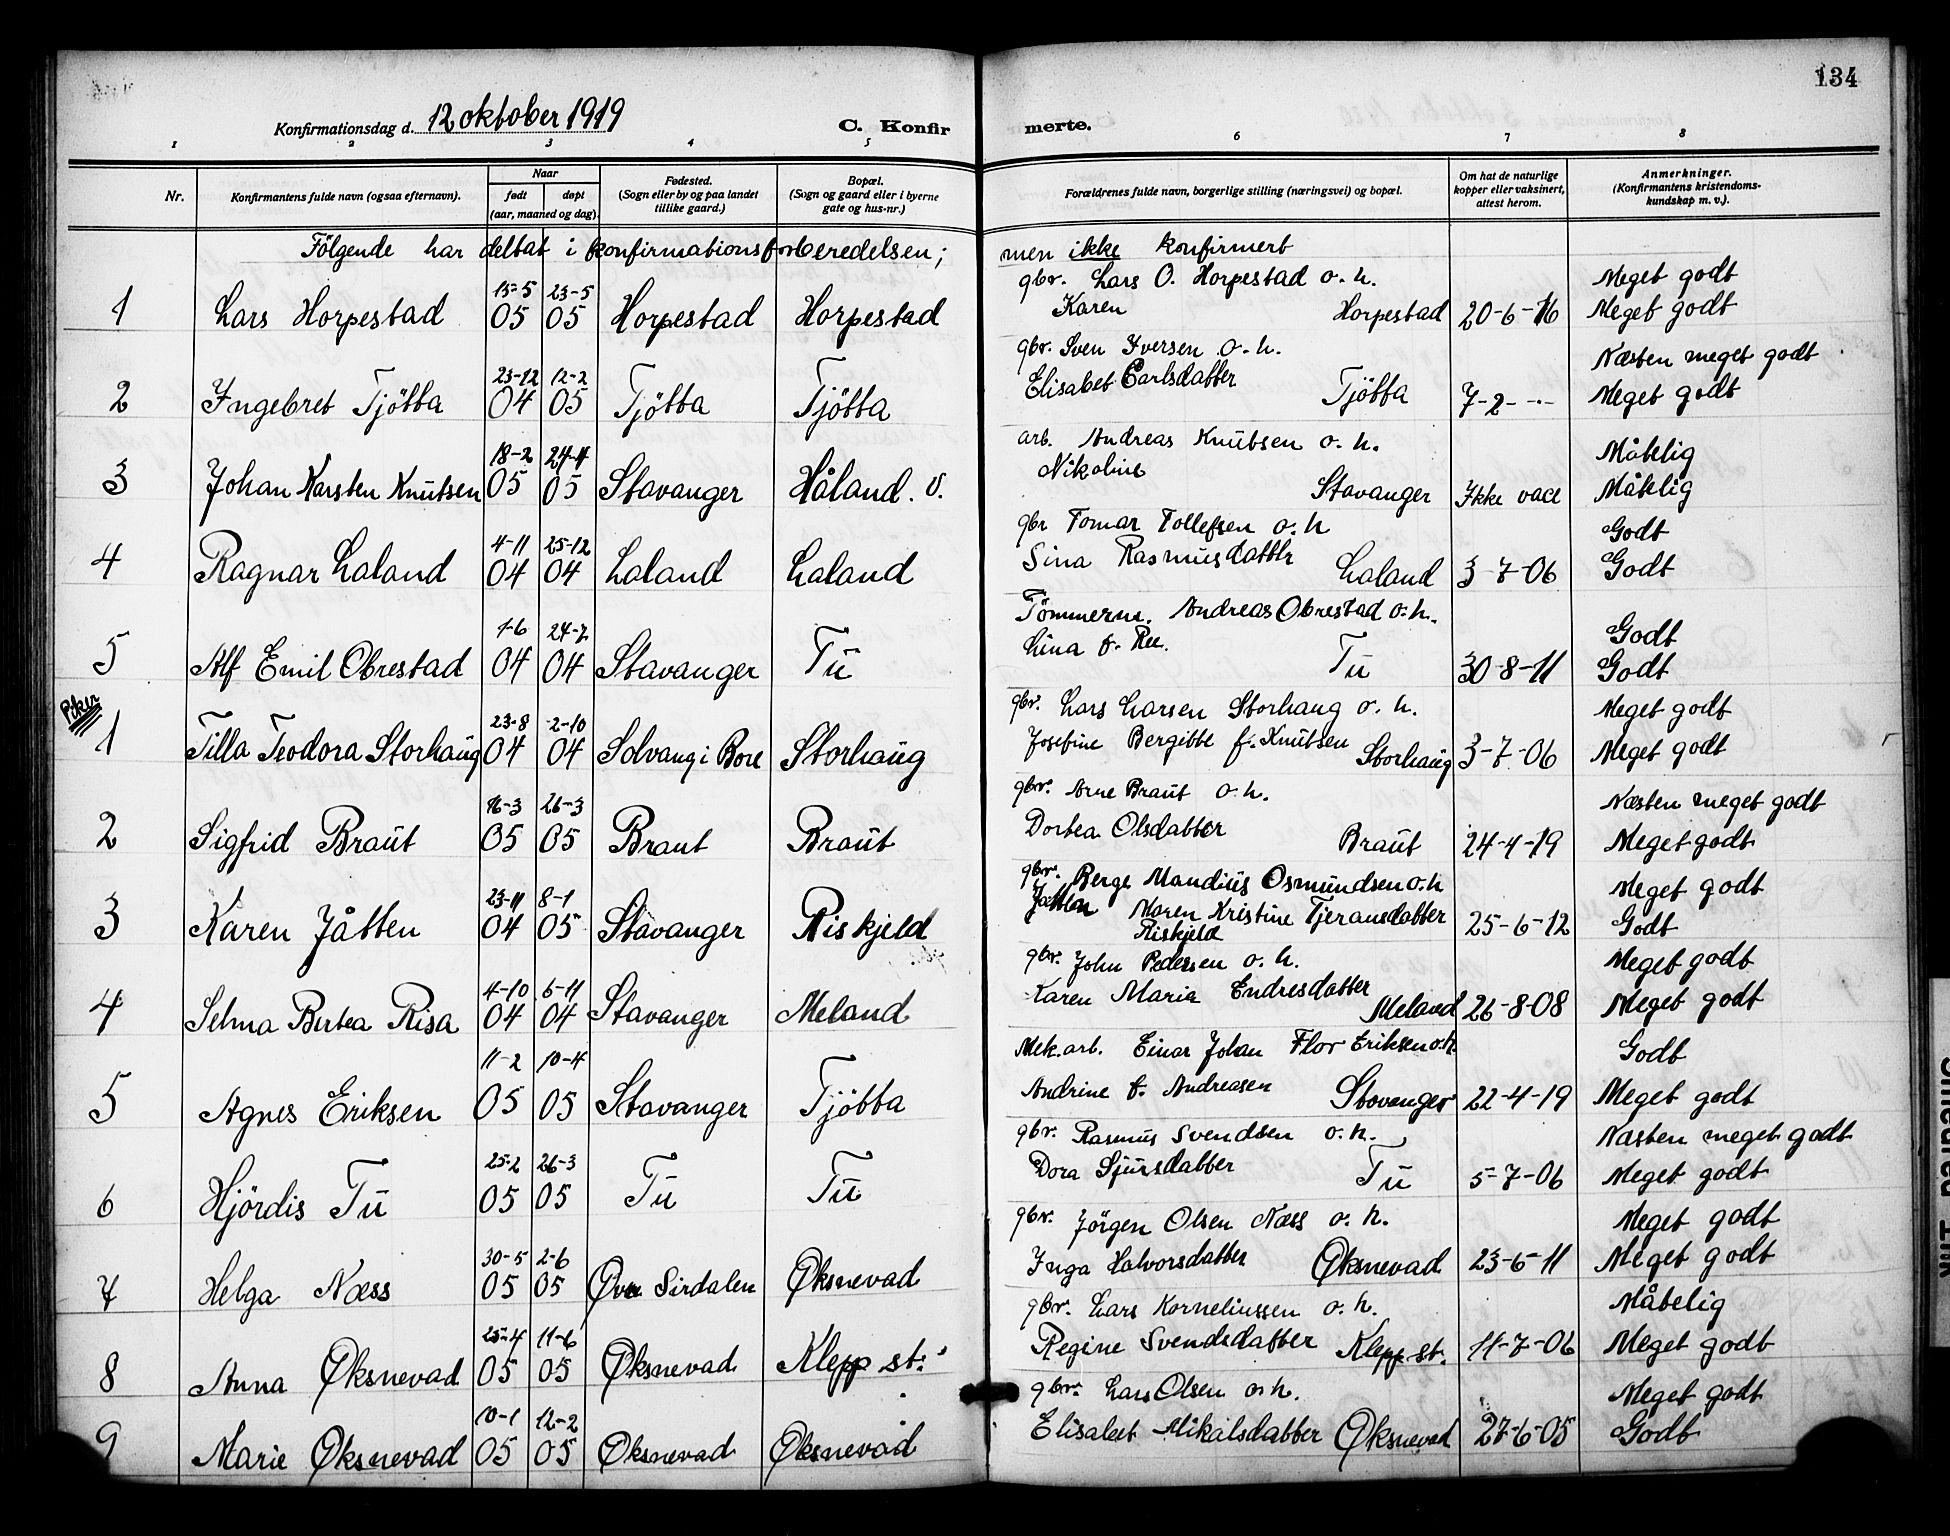 134
Konfirmationsdag d. 12 oktober 1919
C. Konfirmerte.
1 2 3 4 5 6 7 8
Nr. | Konfirmantens fulde navn (ogsaa efternavn). | Naar født døpt (aar, maaned og dag). | Fødested. (Sogn eller by og paa landet tillike gaard.) | Bopæl. (Sogn og gaard eller i byerne gate og hus-nr.) | Forældrenes fulde navn, borgerlige stilling (næringsvei) og bopæl. | Om hat de naturlige kopper eller vaksinert, attest herom. | Anmerkninger. (Konfirmantens kristendomskundskap m. v.).
Fölgende har deltat i konfirmationsforberedelsen; men ikke konfirmert
gbr. Lars O. Horpestad o. h. Meget godt
1 Lars Horpestad 15-5 05 23-5 05 Horpestad Horpestad Karen Horpestad 20-6-16 Meget godt
gbr. Sven Iversen o. h. Næsten meget godt
2 Ingebret Tjötta 23-12 04 12-2 05 Tjötta Tjötta Elisabet Carlsdatter Tjötta 7-2- -"- Meget godt
arb. Andreas Knutsen o. h. Måtelig
3 Johan Karsten Knutsen 18-2 05 24-4 05 Stavanger Håland. v. Nikoline Stavanger Ikke vacc Måtelig
gbr Tomar Tollefsen o. h Godt
4 Ragnar Laland 4-11 04 25-12 04 Laland Laland Sina Rasmusdatter Laland 3-7-06 Godt
Tömmerm. Andreas Obrestad o. h. Godt
5 Alf Emil Obrestad 1-6 04 24-7 04 Stavanger Tu Lina f. Ree. Tu 30-8-11 Godt
Piker
gbr. Lars Larsen Storhaug o. h. Meget godt
1 Tilla Teodora Storhaug 23-8 04 2-10 04 Solvang i Bore Storhaug Josefine Bergitte f. Knutsen Storhaug 3-7-06 Meget godt
gbr. Arne Braut o. h. Næsten meget godt
2 Sigfrid Braut 16-3 05 26-3 05 Braut Braut Dortea Olsdatter Braut 24-4-19 Meget godt
gbr. Berge Mandius Osmundsen o. h Meget godt
3 Karen Jåtten 23-11 04 8-1 05 Stavanger Riskjeld Jåtten Maren Kristine Tjeransdatter Riskjeld 25-6-12 Godt
gbr. John Pedersen o. h. Meget godt
4 Selma Bertea Risa 4-10 04 6-11 04 Stavanger Meland Karen Maria Endresdatter Meland 26-8-08 Meget godt
Mek. arb. Einar Johan Flor Eriksen o. h. Godt
5 Agnes Eriksen 11-2 05 10-4 05 Stavanger Tjötta Andrine f. Andreasen Stavanger 22-4-19 Meget godt
gbr. Rasmus Svendsen o. h. Næsten meget godt
6 Hjördis Tu 25-2 05 26-3 05 Tu Tu Dora Sjursdatter Tu 5-7-06 Meget godt
gbr. Jörgen Olsen Næss o. h. Meget godt
7 Helga Næss 30-5 05 2-6 05 Øvre Sirdalen Øksnevad Inga Halvorsdatter Øksnevad 23-6-11 Meget godt
gbr. Lars Korneliussen o. h. Måtelig
8 Anna Øksnevad 25-4 05 11-6 05 Øksnevad Klepp st. Regine Svendsdatter Klepp st. 11-7-06 Meget godt
gbr. Lars Olsen o. h. Meget godt
9 Marie Øksnevad 10-1 05 12-2 05 Øksnevad Øksnevad Elisabet Mikalsdatter Øksnevad 27-6-05 Godt